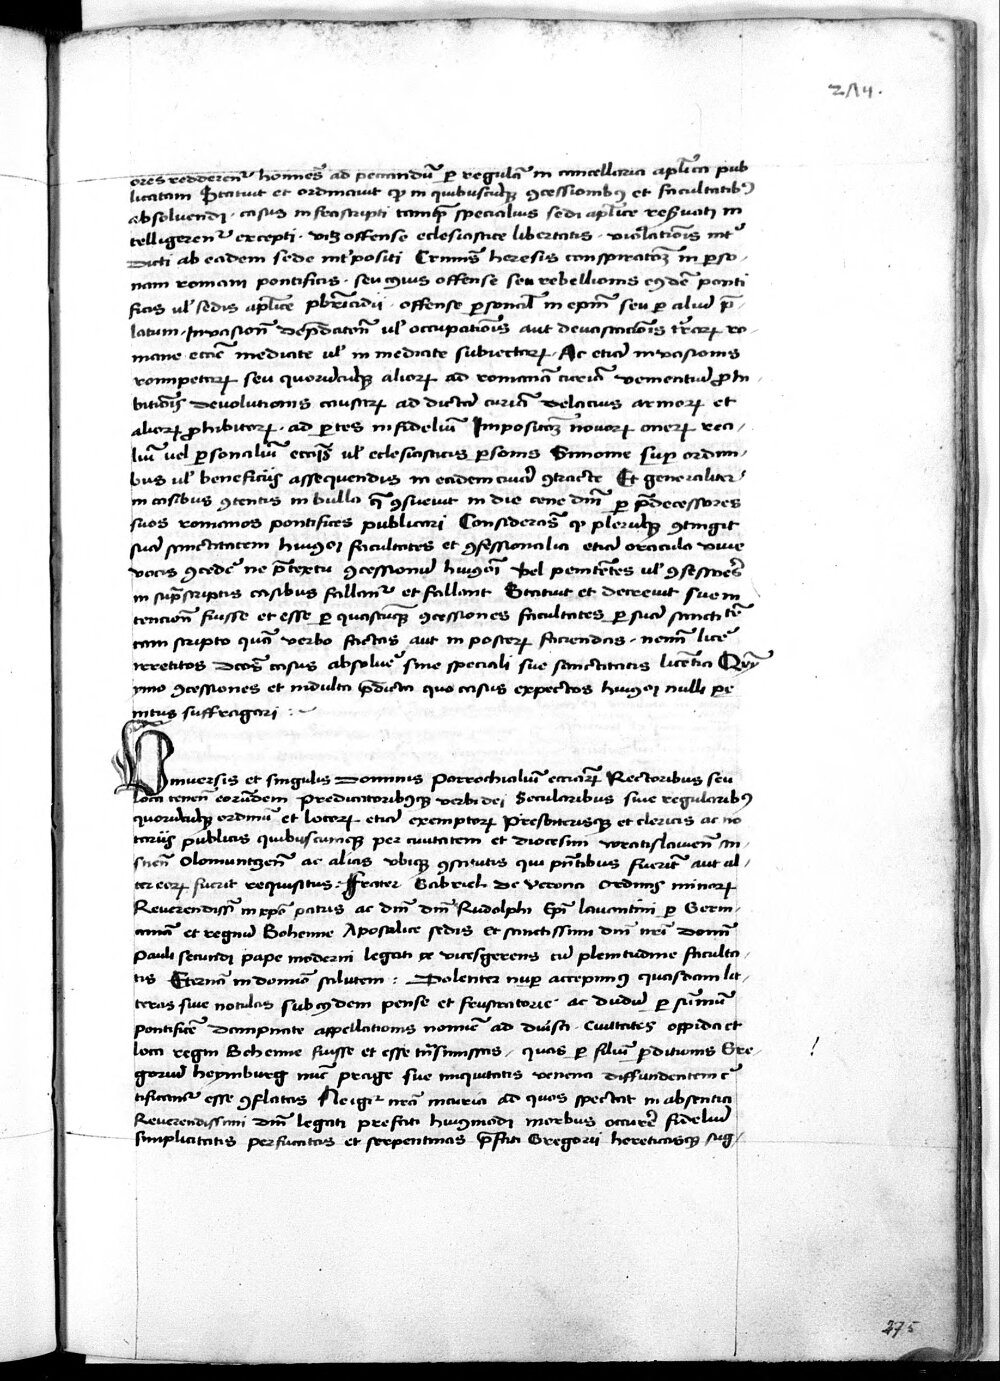 214.
ores redderent᷑ homīes ad peccandū ꝑ regulā in cancellaria apl̄ica pub
licatam Statuit et ordinauit qp in quibuscūqꝫ ꝯcessionibꝯ et facultatibꝯ
absoluendi · casus infrascripti tamqȝ specialius sedi apl̄ice reẜuati in
telligerent᷑ excepti · vidꝫ offense ecclesiastice libertatis · violationis int᷑
dicti ab eadem sede int᷑positi Criminis heresis conspirationis in ꝑso-
nam romani pontificis · seu cuius offense seu rebellionis eiusdē ponti
ficis ul̄ sedis apl̄ice pb̄ricidii · offense ꝑsonal̄ in epm̄ seu ꝑ aliū p̄-
latum · Inuasionis depredationis ul̄ occupationis aut deuastacionis terraꝝ ro-
mane ecctē mediate ul̄ in mediate subiectaꝝ · Ac etiā inuasionis
rompetaꝝ seu quorūcūqꝫ alioꝝ ad romanā curiā venientiū ꝓhi-
bitionis deuolutionis causaꝝ ad dictā curiā delacius armoꝝ et
alioꝝ ꝓhibitoꝝ · ad ꝑtes infideliū Impositionis nouoꝝ oneꝝ rea-
liū uel ꝑsonaliū ecctiis ul̄ ecclesiasticis ꝑsonis Simonie suꝑ ordini-
bus ul̄ beneficiis assequendis in eadem curia ꝯtracte Et generaliter
in casibus ꝯtentis in bulla q̄ ꝯsueuit in die cene dm̄ ꝑ p̄decessores
suos romanos pontifices publicari Considerans qp plerūqꝫ ꝯtingit
suā sanctitatem huiꝯmoi facultates et ꝯfessionalia etiā oracula viue
vocis ꝯcedere ne p̄textu ꝯcessionū huiꝯmoi vel penitētes ul̄ ꝯfessores
in sup̄scriptis casibus fallant᷑ et fallant Statuit et decreuit sue in
tencionis fuisse et esse ꝑ quascūqꝫ ꝯcessiones facultates ꝑ suā sanctitatē
tam scripto quā verbo factas aut in posteꝝ faciendas · nemini licere
irretitos dictos casus absoluere sine speciali sue sanctitatis licentia Quin
ymo ꝯcessiones et indulta p̄dicta quo casus expectos huiꝯmoi nulli pe
nitus suffragari :~
Uniuersis et singulis Dominis Parrochialiū ecctiaꝝ Rectoribus seu
loca tenen̄ eorūdem Predicatoribꝯqꝫ verbi dei Secularibus siue regularibꝯ
quorūcūqꝫ ordinū et locoꝝ etiā exemptoꝝ Presbiterisqꝫ et clericis ac no
tariis publicis quibuscumqꝫ per ciuitatem et diocesim wratislauien̄ Mi-
snen̄ Olomuntzen̄ ac alias vbiqꝫ ꝯstitutis qui pn̄tibus fuerit aut al-
ter eoꝝ fuerit requisitus · Frater Gabriel de Verona Ordinis minoꝝ
Reuerendissi in xpo patris ac dni dni Rudolphi Epi lauantini ꝑ Germ-
aniā et regnū Bohemie Apostolice sedis et sanctissimi dni nr̄i domini
Pauli secundi pape moderni legati ⁊c vicesgerens cū plenitudine faculta-
tis Eternā in domino salutem : Dolenter nuꝑ accepimꝯ quasdam lit-
teras siue notulas sub cuiꝯdem pense et frustratorie ac dudū ꝑ summū
pontificē dampnate appellationis nomine ad diuersa · Ciuitates oppida et
loca regni Bohemie fuisse et esse tn̄smissas · quas ꝑ filiū ꝑditionis Gre-
goriū heymburg nunc prage sue iniquitatis venena diffundentem c̄
tificamur esse ꝯflatas Ne igit᷑ nr̄a incuria ad quos spectat in absentia
Reuerendissimi dni legati prefati huiꝯmodi morbus occurrere fideliū
simplicitatis perfucatas et serpentinas p̄fati Gregorii hereticasqꝫ sug-
!
275